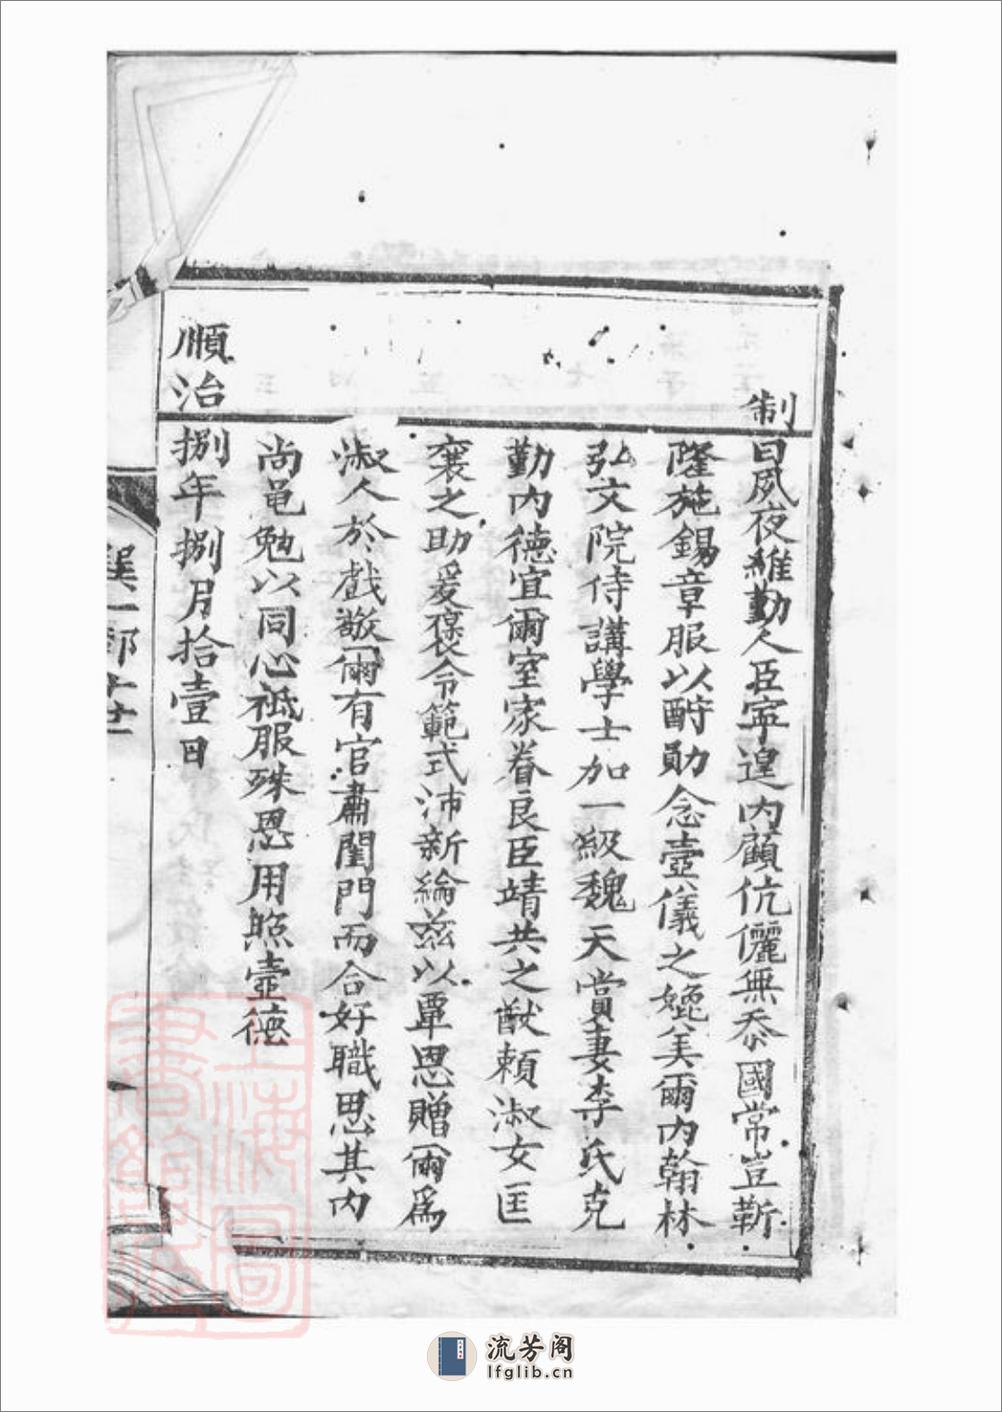 制曰夙夜維勤人臣寧遑內顧伉儷無忝國常豈靳
隆施錫章服以酧勛念壼儀之媲美爾內翰林
弘文院侍講學士加一級魏天賞妻李氏克
勤內德宜爾室家眷良臣靖共之猷賴淑女匡
襄之助爰褒令範式沛新綸茲以覃恩贈爾爲
淑人於戲敬爾有官肅閨門而合好職思其內
尚黽勉以同心祗服殊恩用照壼德
順治捌年捌月拾壹日
上海圖書館藏
流芳阁
lfglib.cn